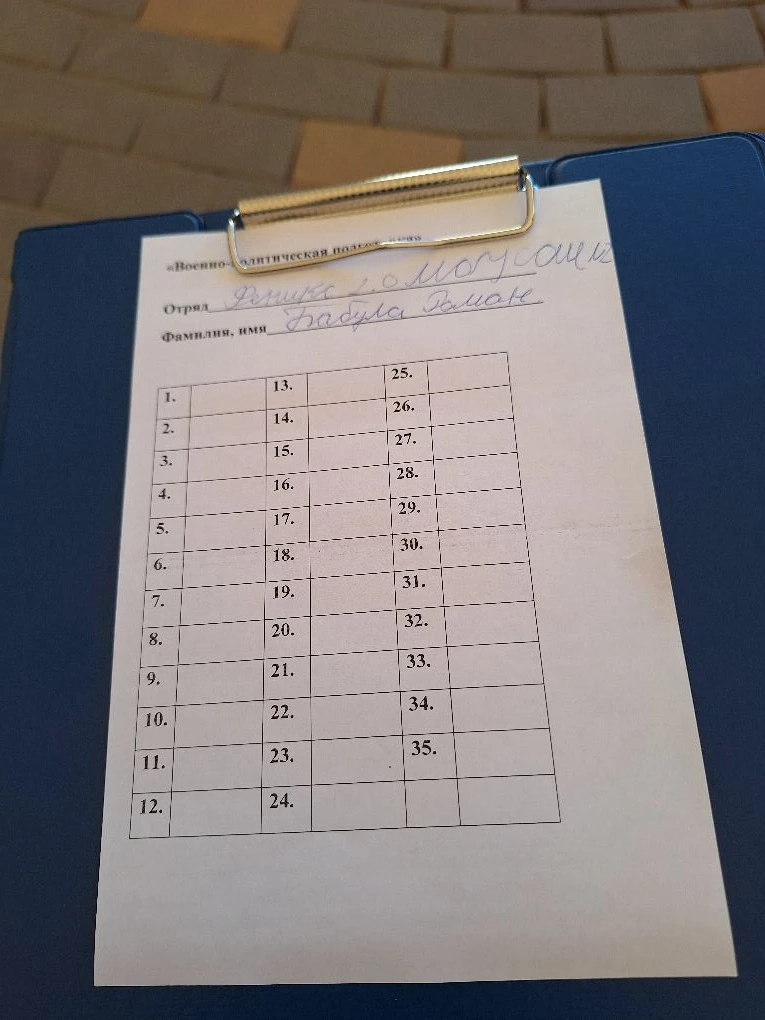 «Военно-политическая подготовка»
Отряд Феникс 2.0
Фамилия, имя Бабула Роман
1. 13. 25.
2. 14. 26.
3. 15. 27.
4. 16. 28.
5. 17. 29.
6. 18. 30.
7. 19. 31.
8. 20. 32.
9. 21. 33.
10. 22. 34.
11. 23. 35.
12. 24.